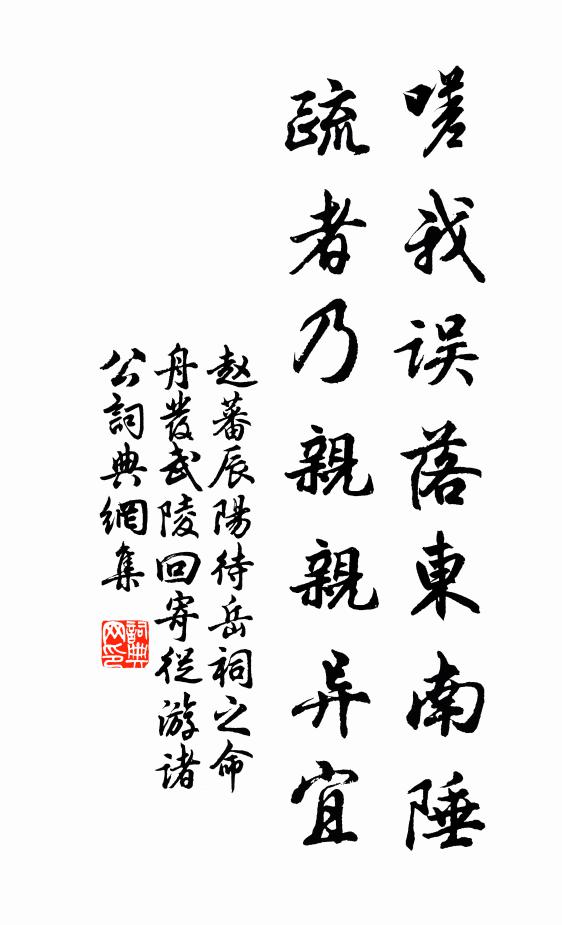 嗟我误落東南陲
疏者乃親親异宜
赵蕃辰陽待岳祠之命
舟發武陵回寄從游諸
公詞典網集
詞典
网印